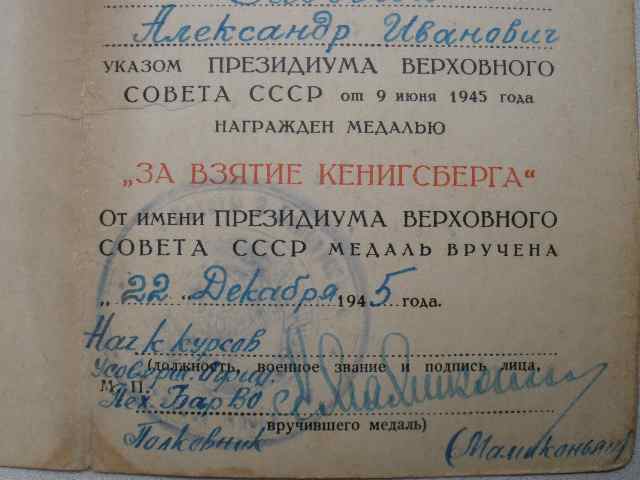 Александр Иванович
УКАЗОМ ПРЕЗИДИУМА ВЕРХОВНОГО
СОВЕТА СССР от 9 июня 1945 года
НАГРАЖДЕН МЕДАЛЬЮ
„ЗА ВЗЯТИЕ КЕНИГСБЕРГА“
От имени ПРЕЗИДИУМА ВЕРХОВНОГО
СОВЕТА СССР МЕДАЛЬ ВРУЧЕНА
„22 Декабря 1945 года.
Нач к курсов
(должность, военное звание и подпись лица,
Усоверш. Офиц.
М. П.
Пех. БарВО
вручившего медаль)
Полковник (Мамиконьян)